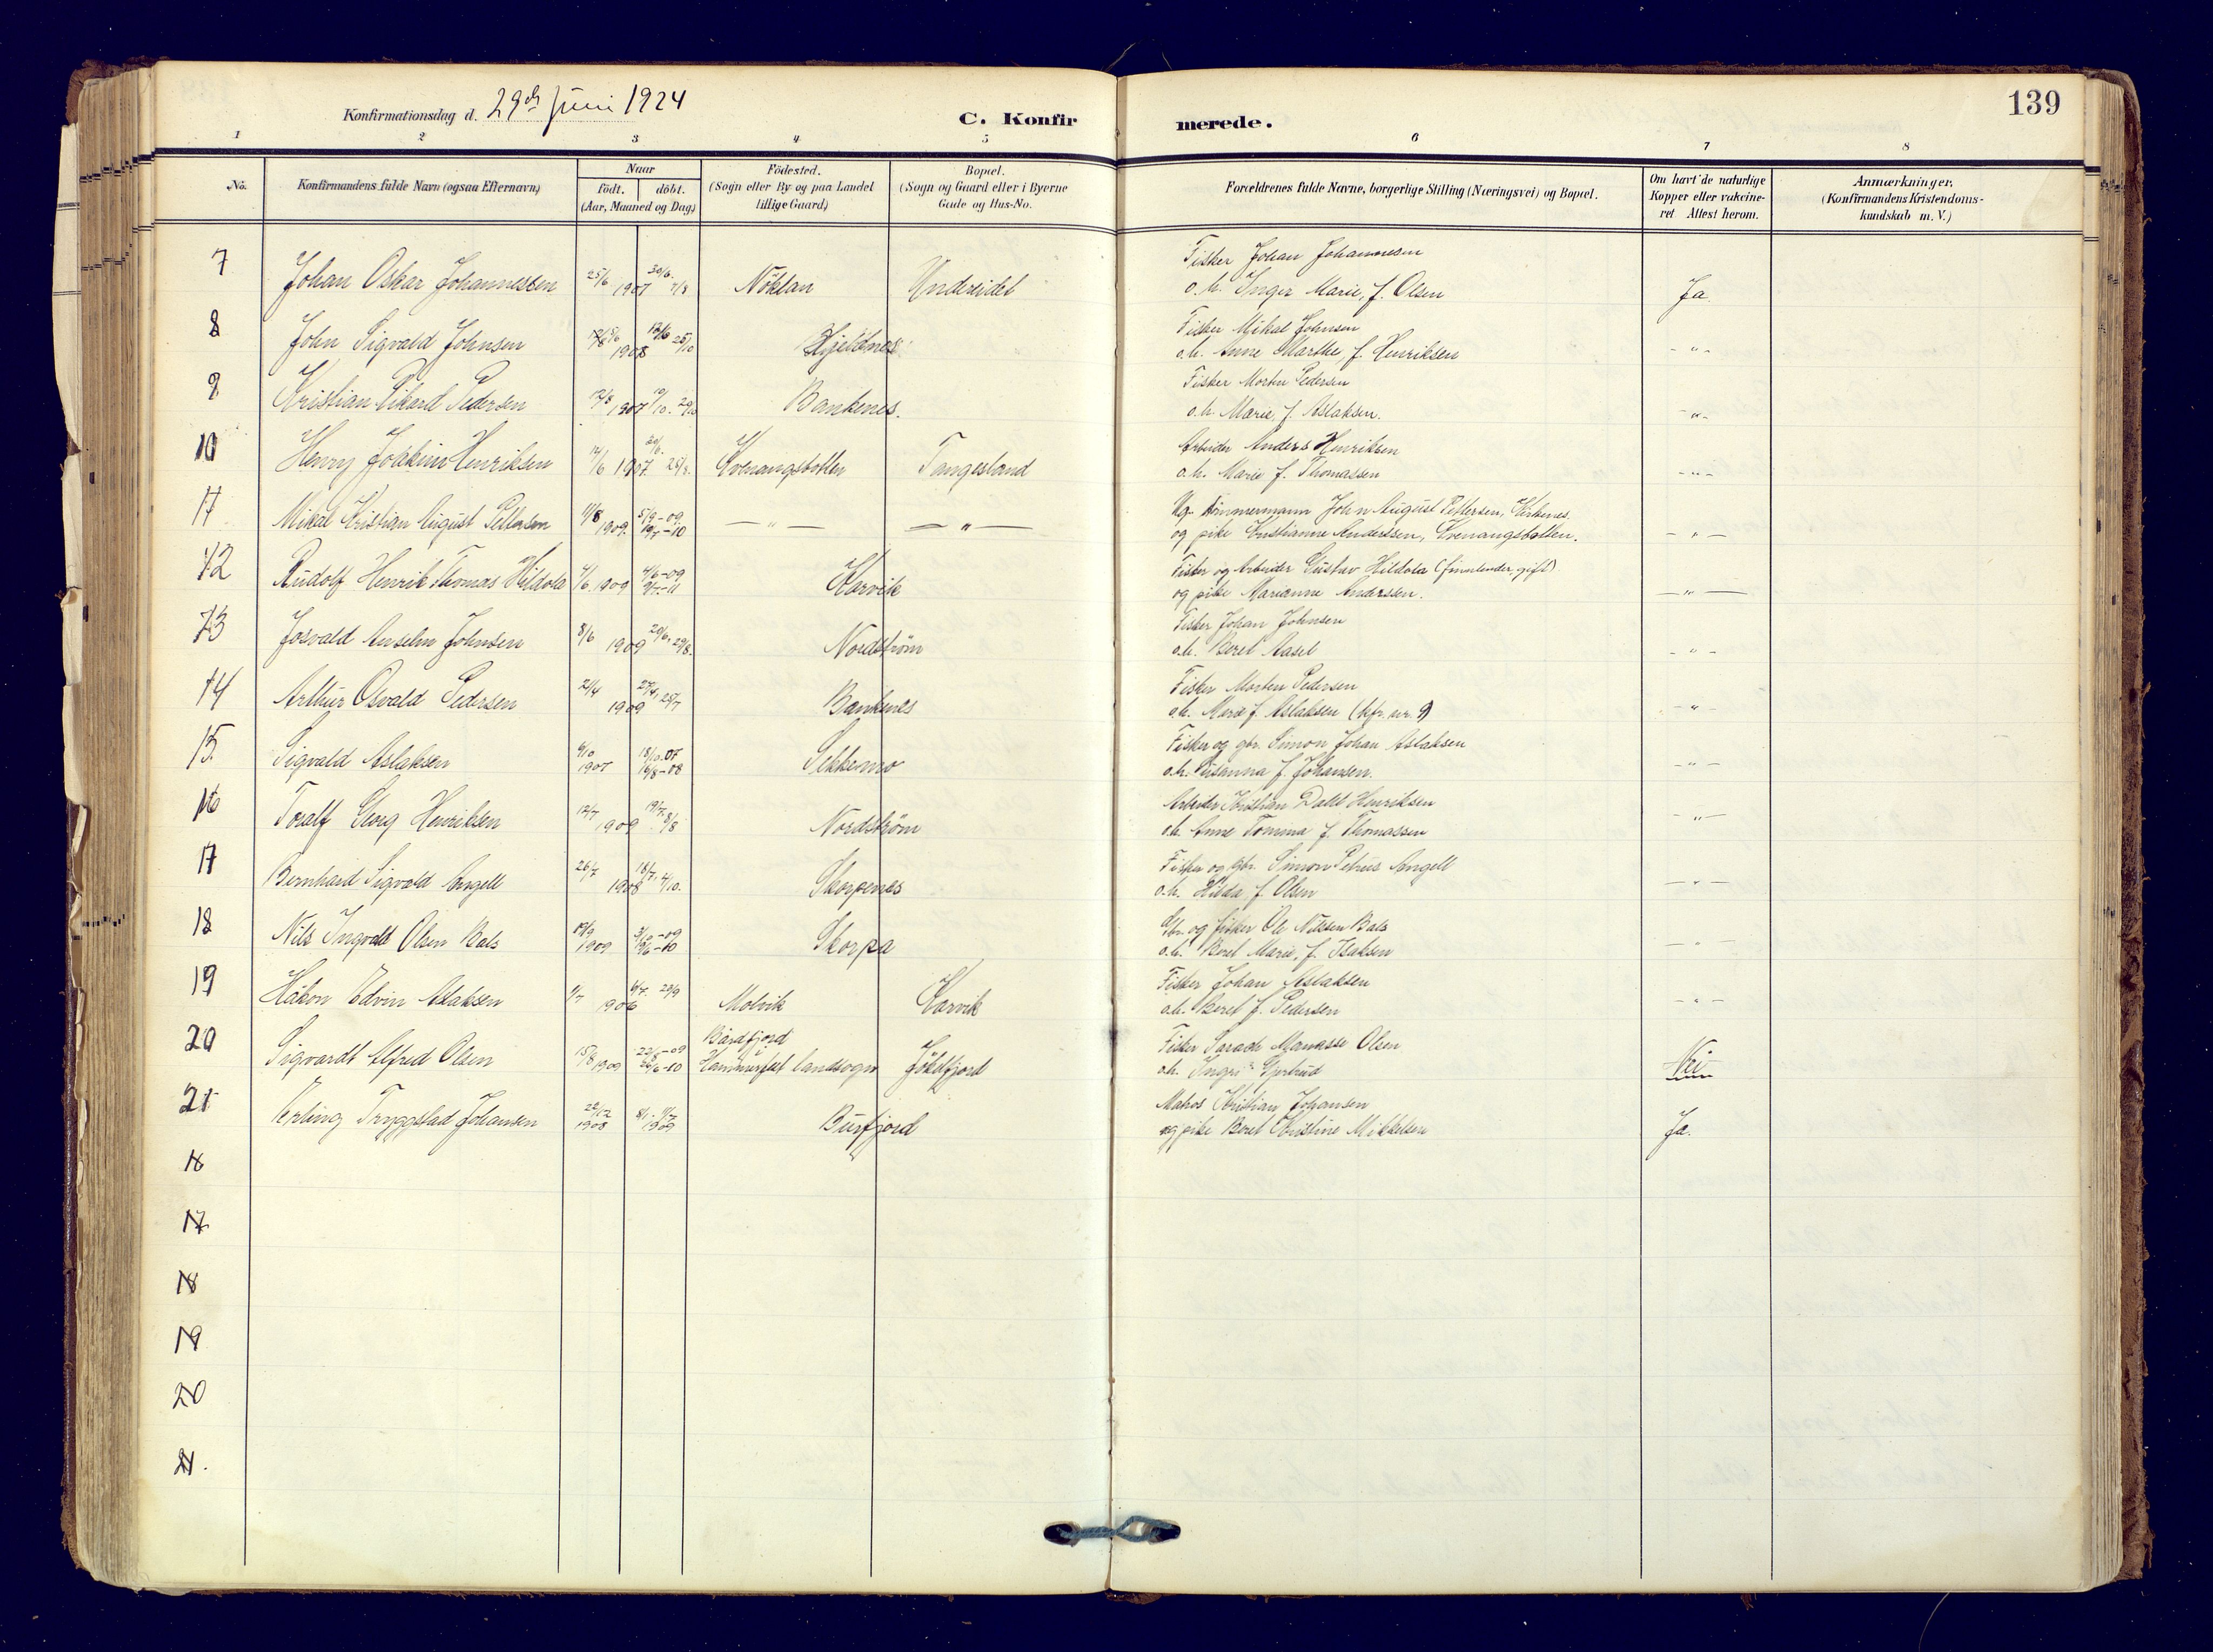 139
Konfirmationsdag d. 29de Juni 1924
C. Konfirmerede.
1 2 3 4 5 6 7 8
No.
Konfirmandens fulde Navn (ogsaa Efternavn)
Naar
födt. döbt.
(Aar, Maaned og Dag)
Födested.
(Sogn eller By og paa Landet
tillige Gaard)
Bopæl.
(Sogn og Gaard eller i Byerne
Gade og Hus-No.
Forældrenes fulde Navne, borgerlige Stilling (Næringsvei) og Bopæl.
Om havt de naturlige
Kopper eller vakcine-
ret. Attest herom.
Anmærkninger,
(Konfirmandens Kristendoms-
kundskab m. V.)
7 Johan Oskar Johannessen 25/6 1907 30/6. 7/8 Nöklan Undereidet
Fisker Johan Johannesen
o.h. Inger Marie, f. Olsen Ja
8 John Sigvald Johnsen 1908 25/10
Fisker Mikal Johnsen
o.h. Anne Marthe, f. Henriksen - " -
9 Kristian Rikard Pedersen 12/8 1907 Bankenes.
Fisker Morten Pedersen
o.h. Marie, f. Aslaksen. - " -
10 Henry Joakim Henriksen 14/6 1907. 25/8. Kvenangsbotten Tangesland
Arbeider Anders Henriksen
o.h. Marie f. Thomassen - " -
11 Mikal Kristian August Pettersen 11/8 1909. 5/9-09 - " - - " -
Ug. tömmermann John August Pettersen, Kirkenes.
og pike Kristianne Anderssen, Kvenangsbotten. - " -
12 Rudolf Henrik Thomas Hildola 4/6 1909 Karvik
Fisker og Arbeider Gustav Hildola (finnlender, gift)
og pike Marianne Anderssen. - " -
13 Josvald Anselm Johnsen 8/6 1909 20/6, 29/8. Nordström
Fisker Johan Johnsen
o.h. Beret Aasel - " -
14 Arthur Osvald Pedersen 2/4 1909 25/7 Bankenes
Fisker Morten Pedersen
o.h. Marie f. Aslaksen (kfr. nr. 9) - " -
15. Sigvald Aslaksen 6/10 1907 18/10.07 16/8-08 Sekkemo
Fisker og gbr. Simon Johan Aslaksen
o.h. Susanna f. Johansen. - " -
16 Toralf Georg Henriksen 12/7 1909 19/7. 8/8 Nordström
Arbeider Kristian Henriksen
o.h. Anne Tomina f. Thomassen - " -
17 Bernhard Sigvald Angell 26/7 1908 4/10. Skorpenes
Fisker og gbr. Simon Petrus Angell
o.h. Hilda f. Olsen - " -
18 Nils Ingvald Olsen Bals 1909 Skorpa
Gbr. og fisker Ole Nilssen Bals
o.h. Beret Marie, f. Isaksen - " -
19 Håkon Edvin Aslaksen 1/7 1906 29/9 Molvik Karvik
Fisker Johan Aslaksen
o.h. Beret f. Pedersen - " -
20 Sigvardt Alfred Olsen 15/8 1909 22/8-09 Bårdfjord
i
Hammerfest landsogn Jökelfjord
Fisker Manasse Olsen
o.h. Ingri Gjertrud Nei
21 Erling Tryggstad Johansen 22/12 1908 1909 Burfjord
Matros Kristian Johansen
og pike Beret Kristine Mikkelsen Ja.
16
17
18
19
20
21.